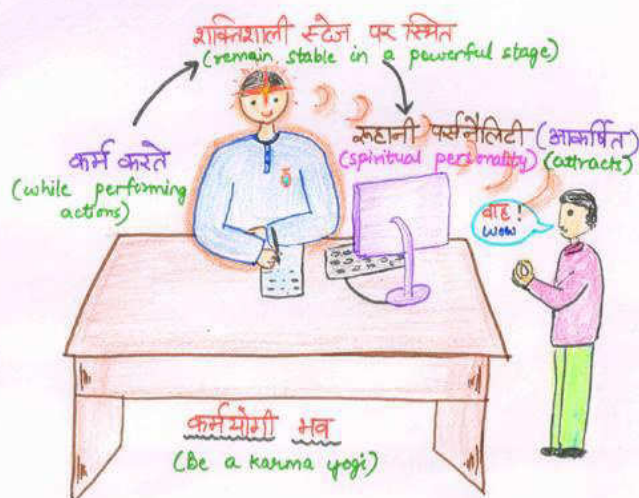 शक्तिशाली स्टेज पर स्थित
(remain stable in a powerful stage)
कर्म करते
(while performing
actions)
रूहानी पर्सनैलिटी (आकर्षित)
(spiritual personality) (attracts)
वाह!
wow
कर्मयोगी भव
(Be a karma yogi)